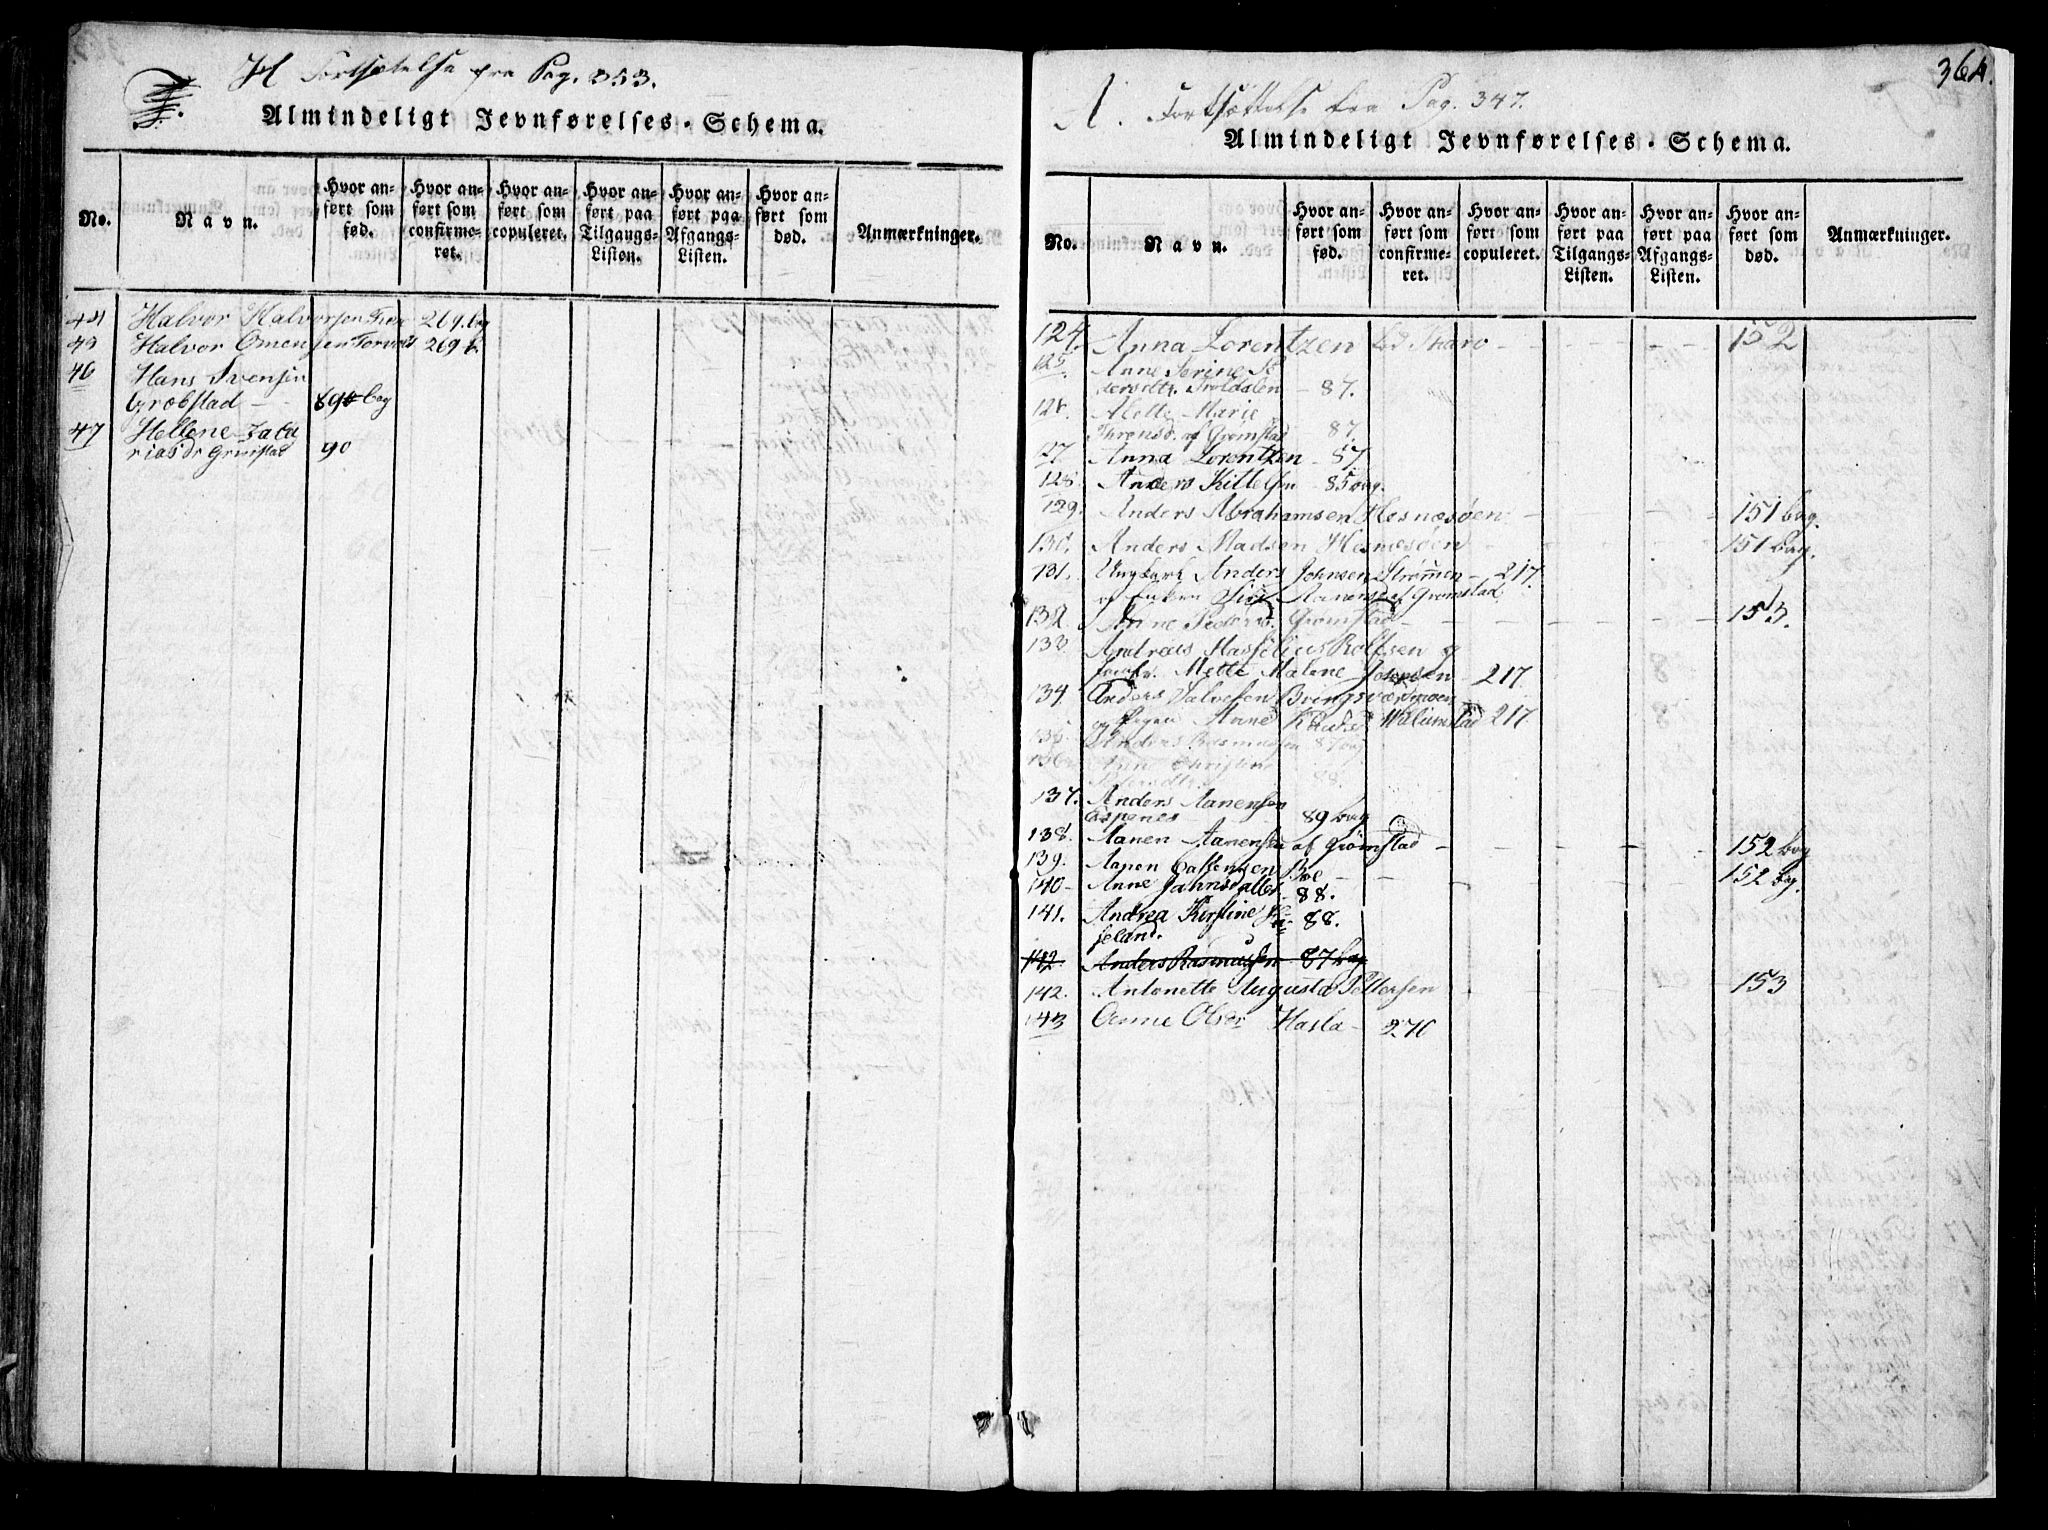 H Fortsættelse fra Pag. 353.
Almindeligt Jevnførelses-Schema.
No.
Navn.
Hvor anført som fød.
Hvor anført som confirmeret.
Hvor anført som copuleret.
Hvor anført paa Tilgangs-Listen.
Hvor anført paa Afgangs-Listen.
Hvor anført som død.
Anmærkninger.
44 Halvor Halvorsen 269. bag
45 Halvor Omensen 269 b.
46 Hans Svensen
Grobstad 89 bag
47 Hellene Zaka
riasdr Grimstad 90
364.
A. Fortsættelse fra Pag. 347.
Almindeligt Jevnførelses-Schema.
No.
Navn.
Hvor anført som fød.
Hvor anført som confirmeret.
Hvor anført som copuleret.
Hvor anført paa Tilgangs-Listen.
Hvor anført paa Afgangs-Listen.
Hvor anført som død.
Anmærkninger.
124. Anna Lorentzen fød 152
125. Anne Serine Pe
dersdtr. Troldalen - 87.
126. Alette Marie
Thronsd. af Grømstad 87.
127. Anna Lorentzen - 87
128. Anders Kittelsen - 85 bag.
129. Anders Abrahamsen Hesnesøen 151 bag.
130. Anders Madsen Hesnesøen 151 bag.
131. Ungkarl Anders Johnsen Strømmen - 217.
og Enken Siri Aanensd af Grømstad
132. Anne Pedersd. Grømstad 153.
133. Andreas Hasselius Rolfsen og
Jomfr. Mette Malene Jensen 217.
134. Anders Salvesen Bringsværmoen
og Pigen Anne 217.
135. Anders Rasmussen 87 bag
136. Anne Christine
88.
137. Anders Aanensen
Espenes 89 bag
138. Aanen Aanensen af Grømstad 152 bag
139. Aanen 152 bag.
140- Anne 88.
141. Andrea Kirstine
seland. 88.
142. Anders Rasmussen 87 bag
142. Antonette Augusta Pettersen 153
143 Anne Olsdr Hasla 270